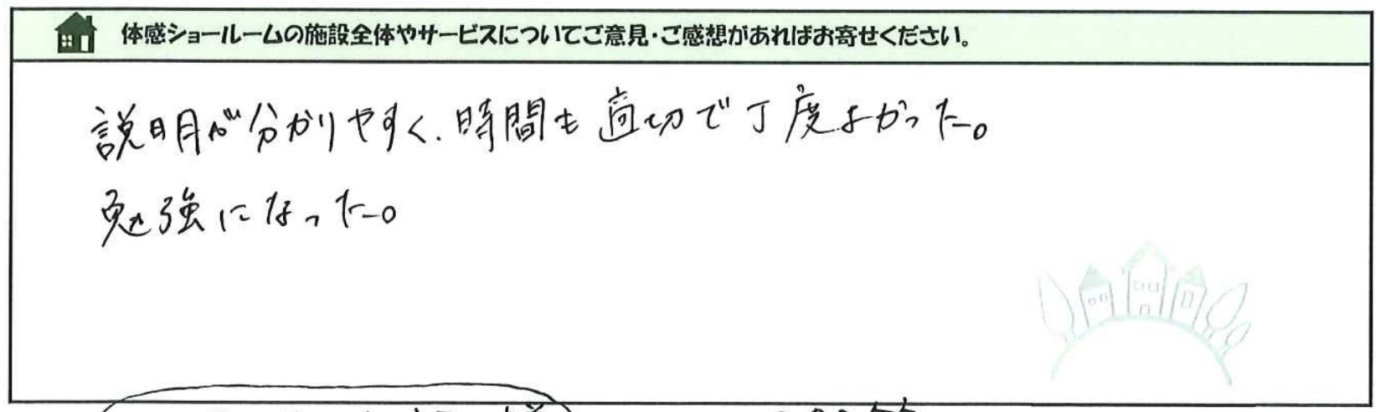 体感ショールームの施設全体やサービスについてご意見・ご感想があればお寄せください。
説明が分かりやすく、時間も適切で丁度よかった。
勉強になった。